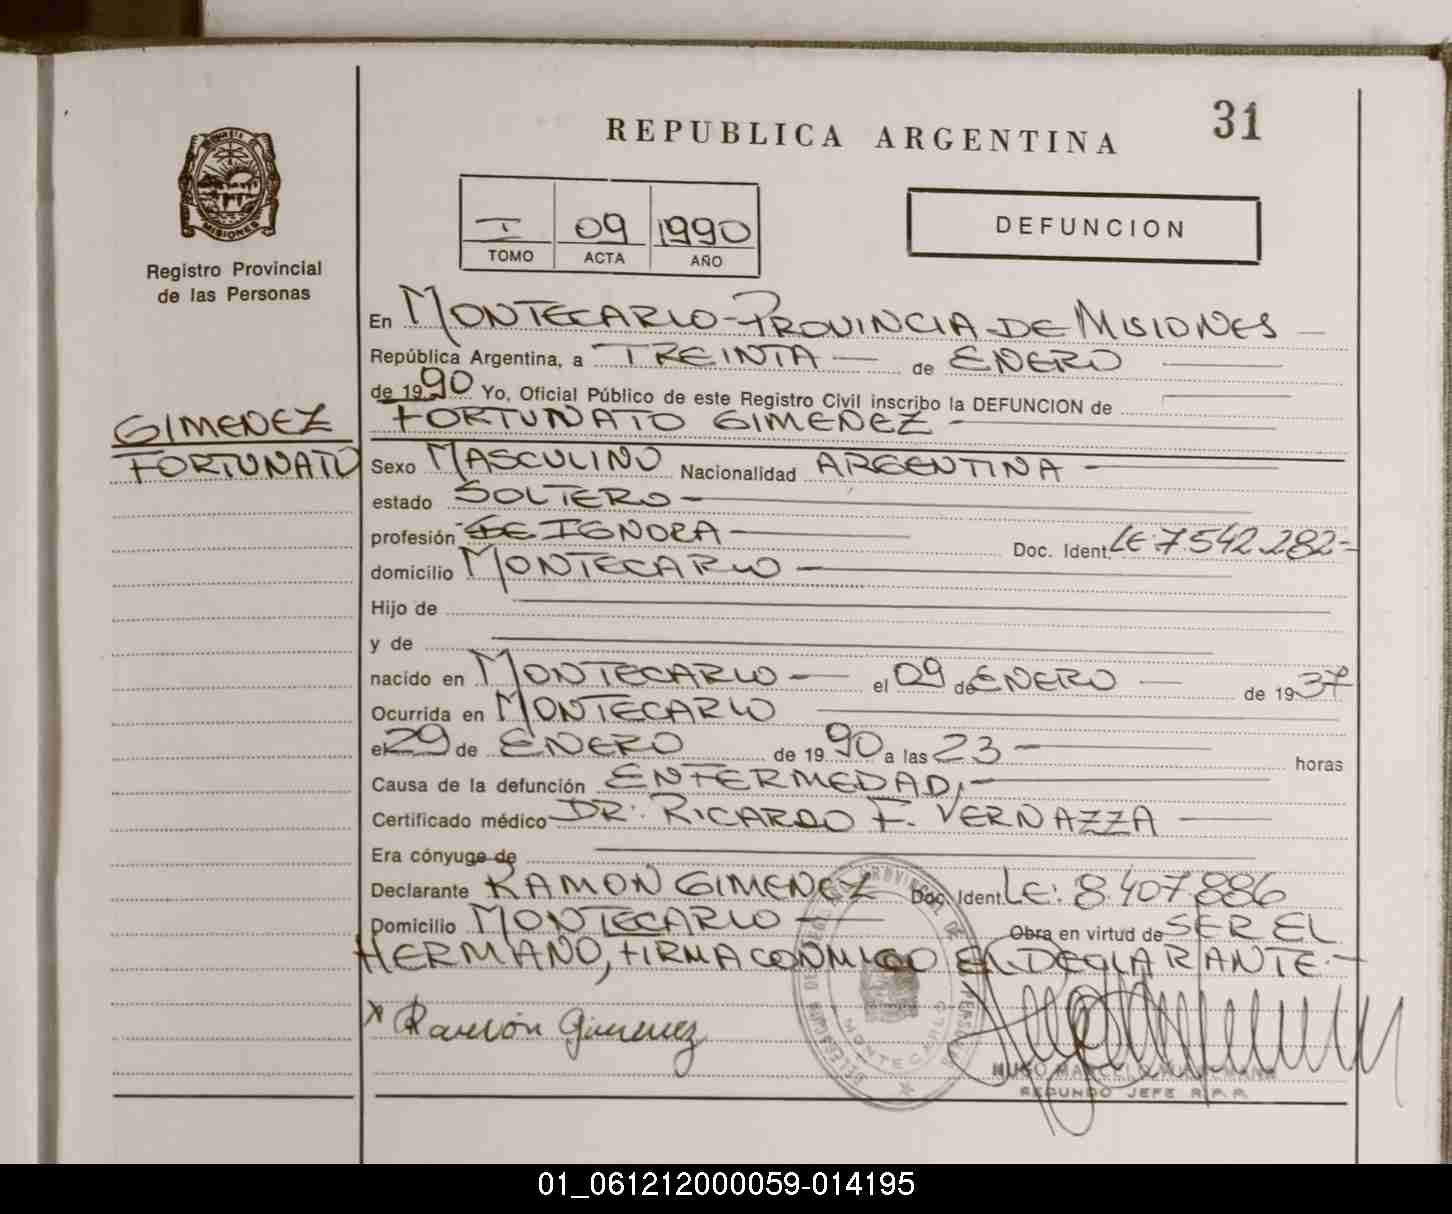 31
REPUBLICA ARGENTINA
DEFUNCION
I 09 1990
TOMO ACTA AÑO
MISIONES
Registro Provincial
de las Personas
GIMENEZ
FORTUNATO
En MONTECARLO-PROVINCIA DE MISIONES
República Argentina, a TREINTA de ENERO
de 1990 Yo, Oficial Público de este Registro Civil inscribo la DEFUNCION de
FORTUNATO GIMENEZ
Sexo MASCULINO Nacionalidad ARGENTINA
estado SOLTERO
profesión SE IGNORA Doc. Ident. LE:7.542.282-
domicilio MONTECARLO
Hijo de
y de
nacido en MONTECARLO el 09 de ENERO de 1937
Ocurrida en MONTECARLO
el 29 de ENERO de 1990 a las 23 horas
Causa de la defunción ENFERMEDAD,-
Certificado médico DR: RICARDO F. VERNAZZA
Era cónyuge de
Declarante RAMON GIMENEZ Doc. Ident. LE: 8.407.886
Domicilio MONTECARLO Obra en virtud de SER EL
HERMANO, FIRMA CONMIGO EL DECLARANTE.-
x Ramón Gimenez
MONTECARLO
HUGO MARCELO
SEGUNDO JEFE R.P.P.
01_061212000059-014195